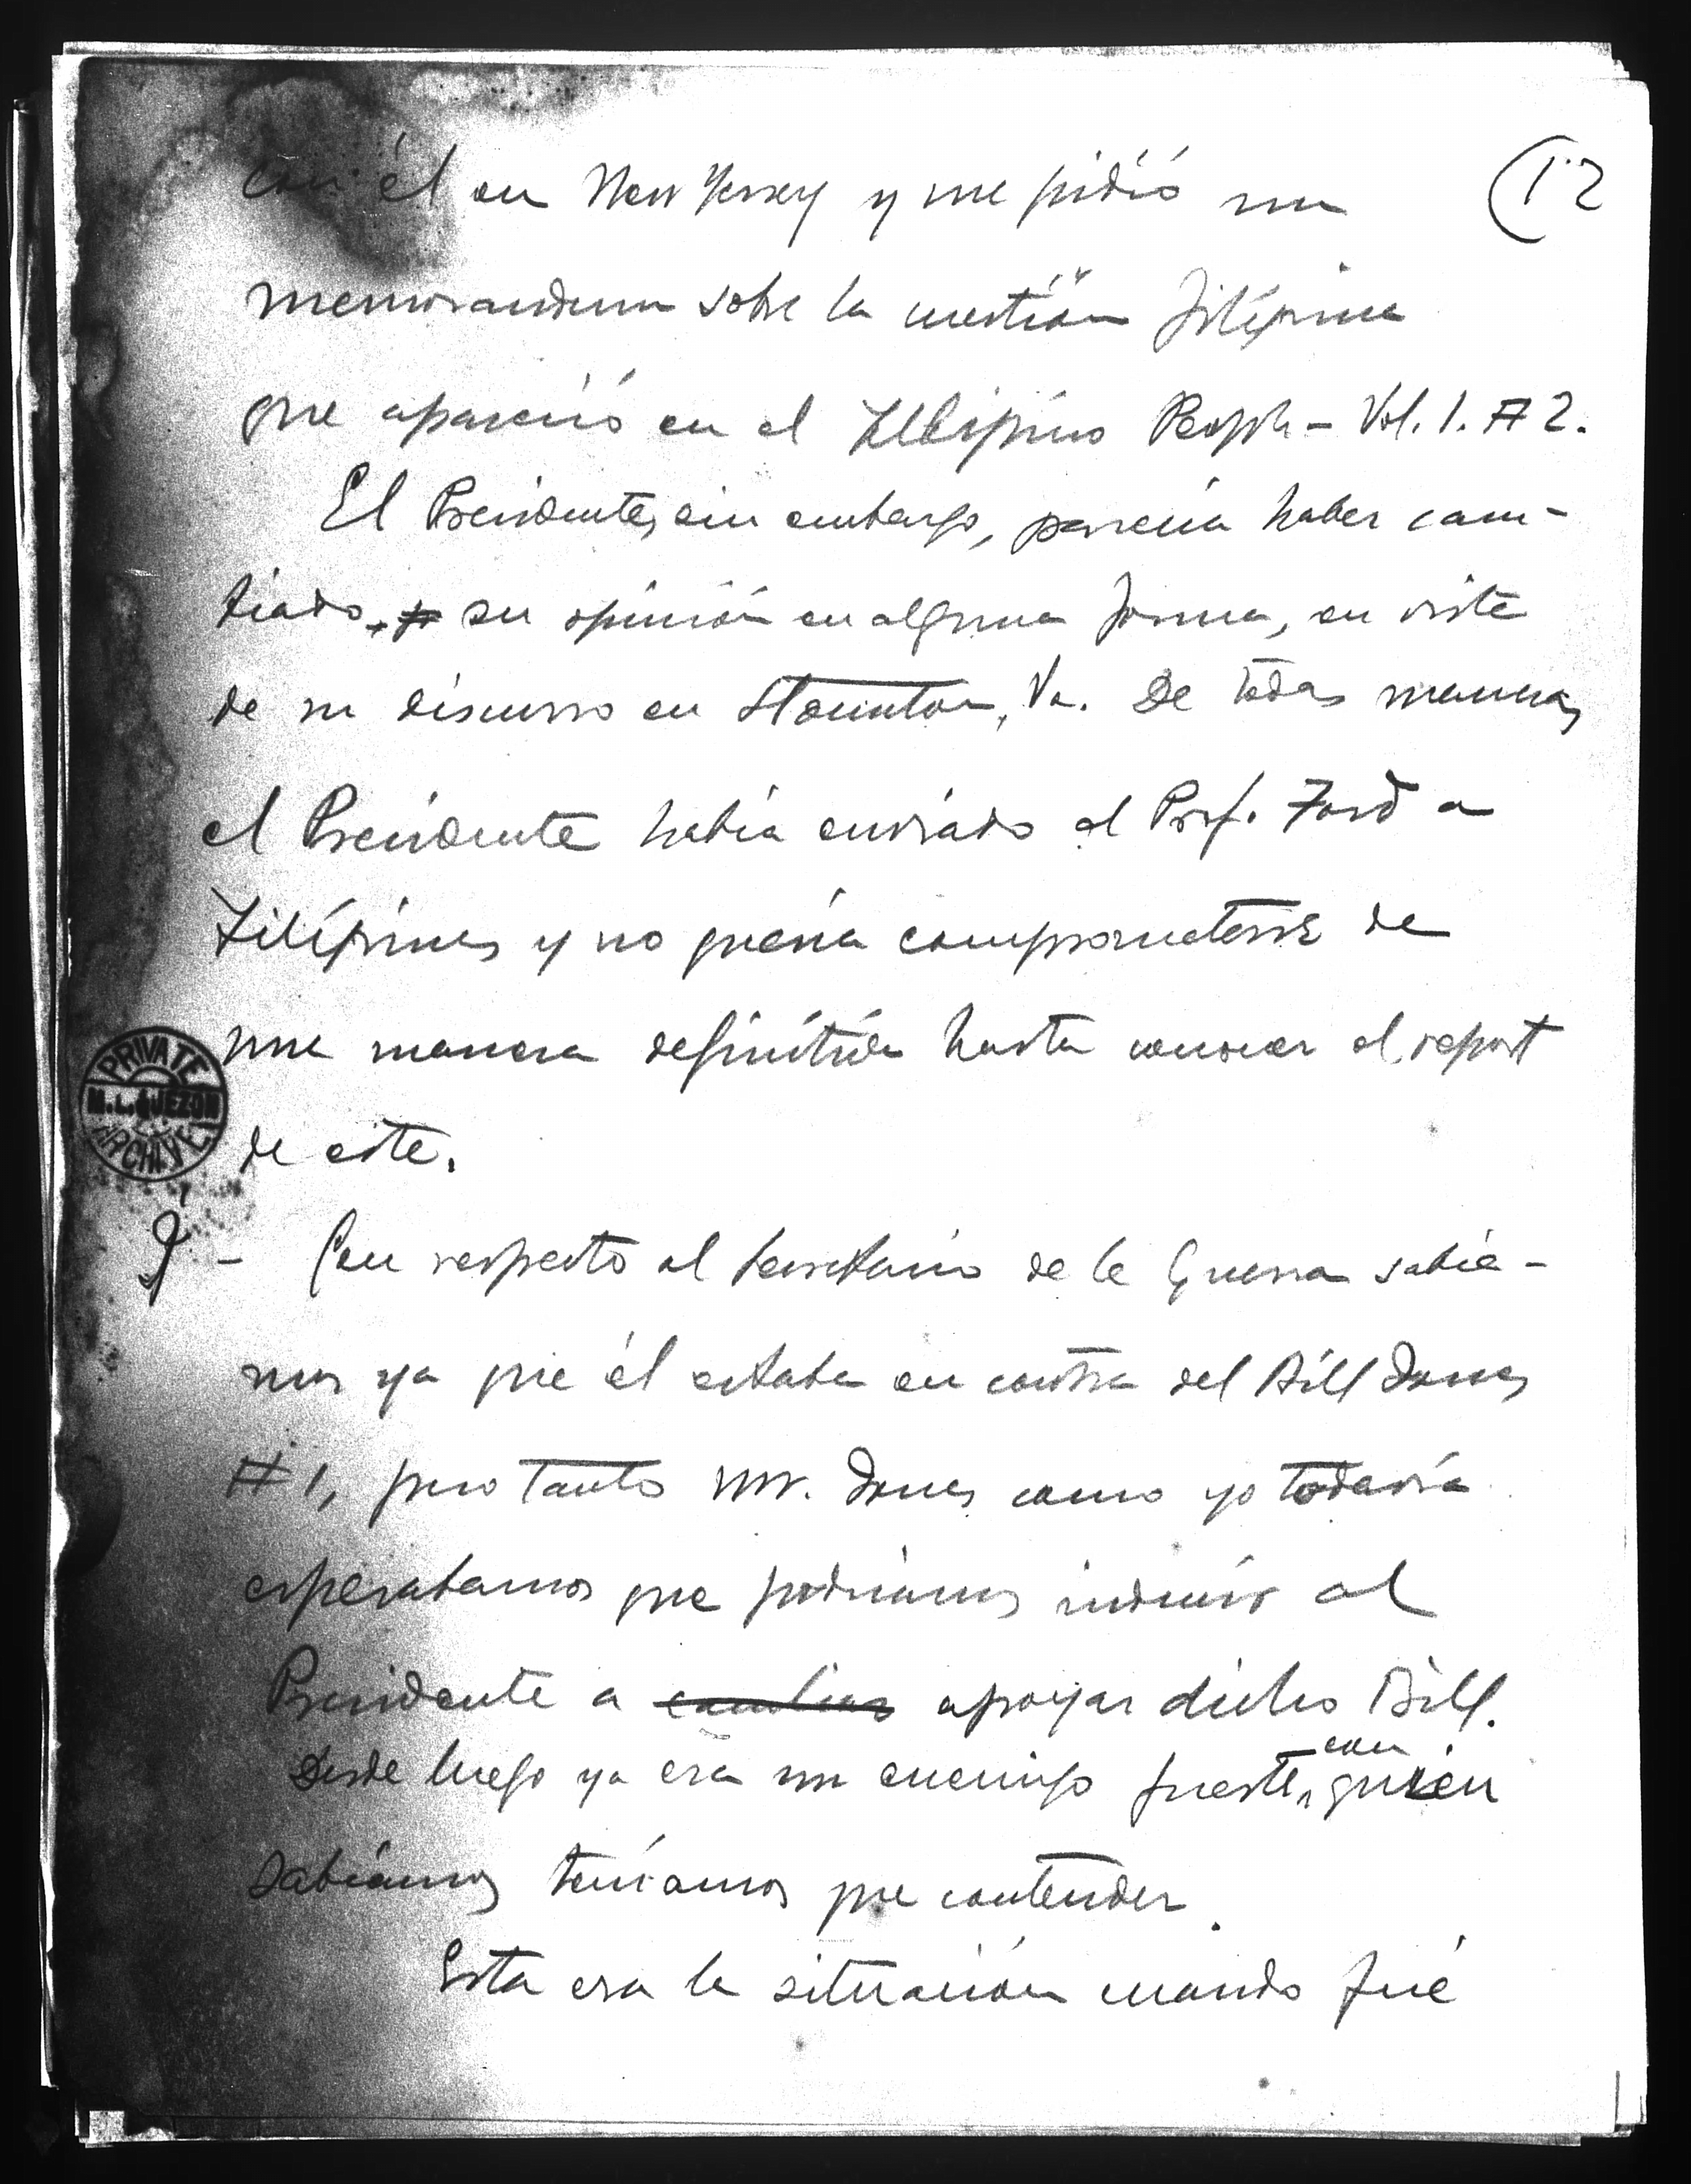 (12
con él en New Jersey y me pidió un
memorandum sobre la cuestión filipina
que apareció en el Filipino People - Vol. 1. # 2.
El Presidente, sin embargo, parecía haber cam-
biado su opinión en alguna forma, en vista
de su discurso en Staunton, Va. De todas maneras,
el Presidente había enviado al Prof. Ford a
Filipinas y no quería comprometerse de
una manera definitiva hasta conocer el report
de este.
PRIVATE
M. L. QUEZON
ARCHIVE
- Con respecto al Secretario de la Guerra sabía-
mos ya que él estaba en contra del Bill Jones
# 1, pero tanto Mr. Jones como yo todavía
esperabamos que podríamos inducir al
Presidente a cambiar apoyar dicho Bill.
Desde luego ya era un enemigo fuerte, con quien
sabíamos teníamos que contender.
Esta era la situación cuando fué